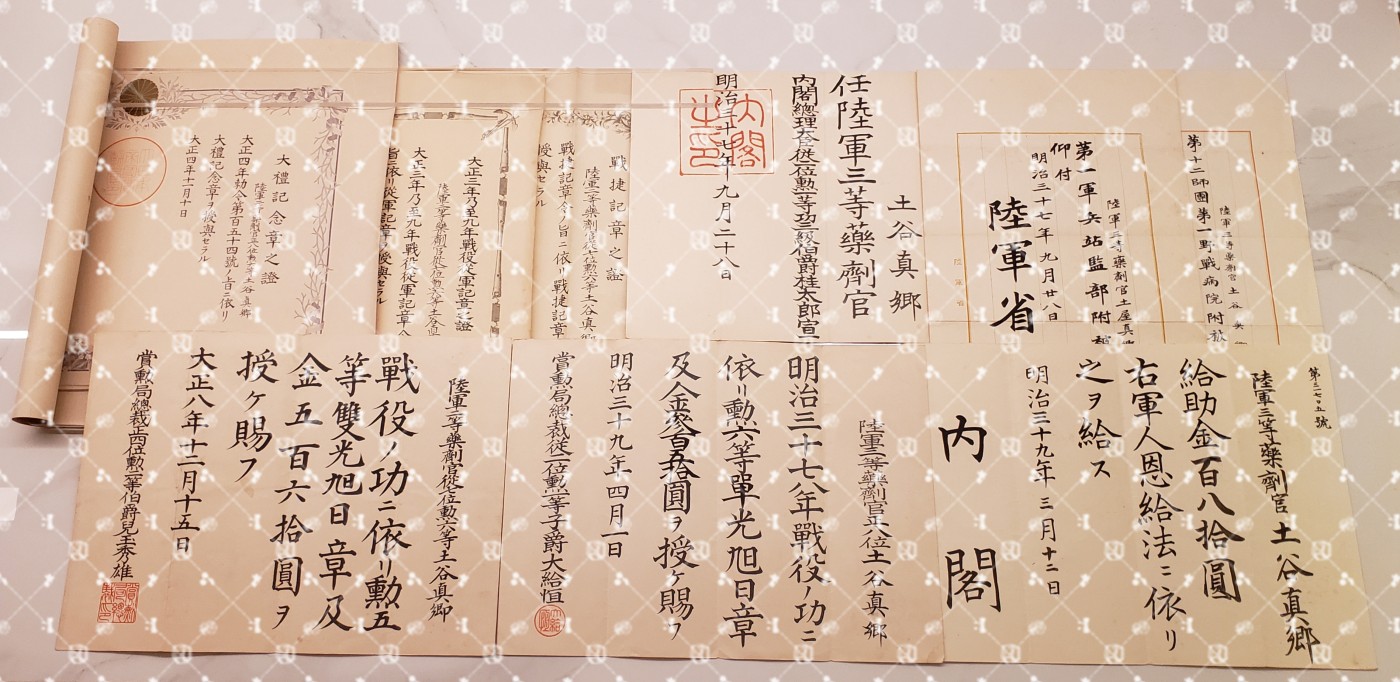 第十二師團第一野戰病院附
陸軍三等藥劑官土谷真
陸軍三等藥劑官土屋真
第一軍兵站監部附
仰付
明治三十七年九月廿八日
陸軍省
土谷真郷
任陸軍三等藥劑官
内閣總理大臣從二位勲一等功三級伯爵桂太郎宣
明治三十七年九月二十八日
内閣之印
戰捷記章之證
戰捷記章令ノ旨ニ依リ戰捷記章
授與セラル
大正三年乃至九年戰役從軍記章之證
大正三年乃至九年戰役從軍記章令
旨ニ依リ從軍記章ヲ授與セラル
大禮記念章之證
大正四年勅令第百五十四號ノ旨ニ依リ
大禮記念章ヲ授與セラル
大正四年十一月十日
第三一七〇五號
陸軍三等藥劑官 土谷真郷
給助金百八拾圓
右軍人恩給法ニ依リ
之ヲ給ス
明治三十九年三月十二日
内閣
陸軍三等藥劑官正八位土谷真郷
明治三十七八年戰役ノ功ニ
依リ勲六等單光旭日章
及金參百五拾圓ヲ授ケ賜フ
明治三十九年四月一日
賞勲局總裁從二位勲一等子爵大給恒
陸軍二等藥劑官從七位勲六等土谷真郷
戰役ノ功ニ依リ勲五
等雙光旭日章及
金五百六拾圓ヲ
授ケ賜フ
大正八年十二月十五日
賞勲局總裁正四位勲二等伯爵兒玉秀雄